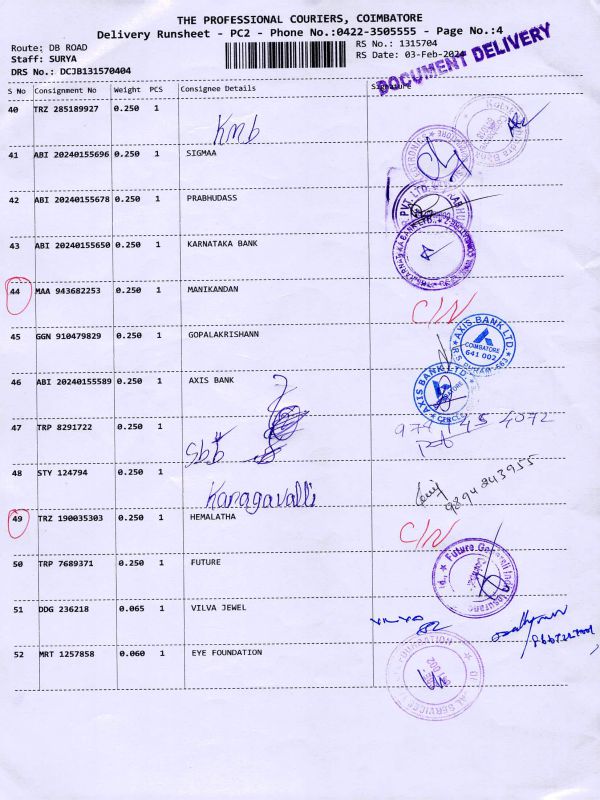 THE PROFESSIONAL COURIERS, COIMBATORE
Delivery Runsheet - PC2 - Phone No.:0422-3505555 - Page No.:4
Route: DB ROAD
RS No.: 1315704
Staff: SURYA
RS Date: 03-Feb-2024
DRS No.: DCJB131570404
DOCUMENT DELIVERY
S No Consignment No Weight PCS Consignee Details Signature
40 TRZ 285189927 0.250 1
Kmb
41 ABI 20240155696 0.250 1 SIGMAA
42 ABI 20240155678 0.250 1 PRABHUDASS
PVT. LTD.
43 ABI 20240155650 0.250 1 KARNATAKA BANK
44 MAA 943682253 0.250 1 MANIKANDAN
C/N
45 GGN 910479829 0.250 1 GOPALAKRISHANN
AXIS BANK LTD.
COIMBATORE
641 002
46 ABI 20240155589 0.250 1 AXIS BANK
AXIS BANK LTD.
47 TRP 8291722 0.250 1
Sbb
48 STY 124794 0.250 1
Kanagavalli
9894843955
49 TRZ 190035303 0.250 1 HEMALATHA
C/N
50 TRP 7689371 0.250 1 FUTURE
Future Generali India
51 DDG 236218 0.065 1 VILVA JEWEL
52 MRT 1257858 0.060 1 EYE FOUNDATION